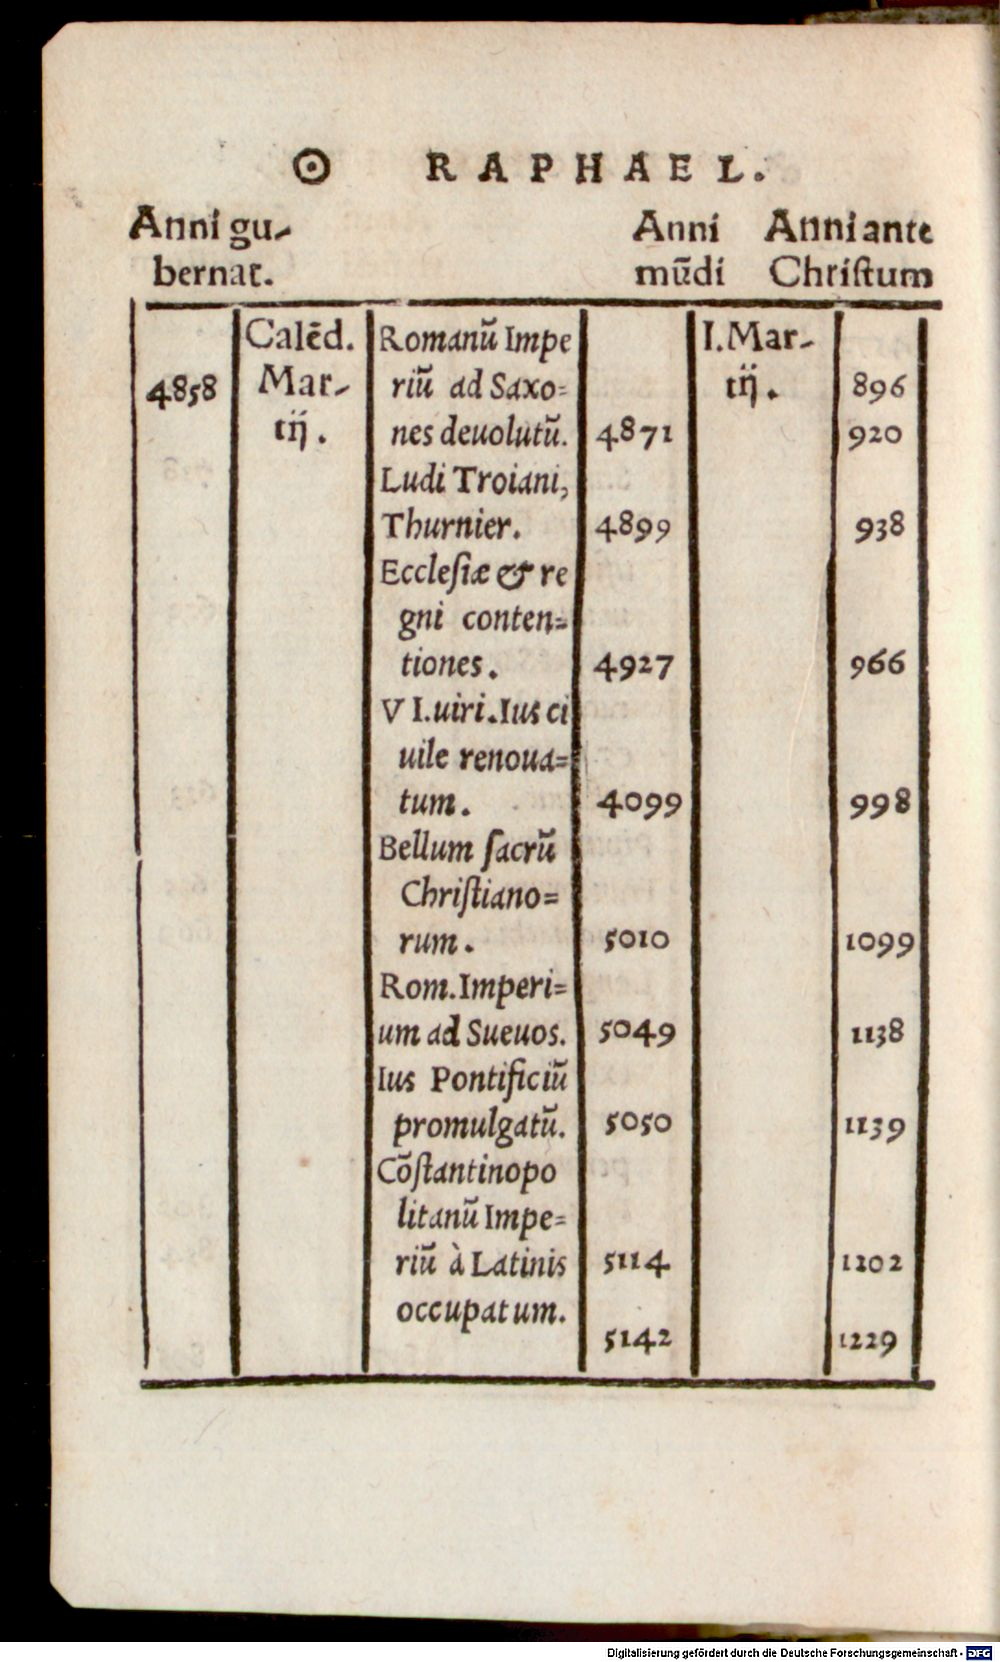 ☉ RAPHAEL.
Anni gu- Anni Anni ante
bernat. mũdi Chriſtum
Calẽd. Romanũ Impe I. Mar-
4858 Mar- riũ ad Saxo= tij. 896
tij. nes deuolutũ. 4871 920
Ludi Troiani,
Thurnier. 4899 938
Eccleſiæ & re
gni conten=
tiones. 4927 966
VI. uiri. Ius ci
uile renoua=
tum. 4099 998
Bellum ſacrũ
Chriſtiano=
rum. 5010 1099
Rom. Imperi=
um ad Sueuos. 5049 1138
Ius Pontificiũ
promulgatũ. 5050 1139
Cõſtantinopo
litanũ Impe=
riũ à Latinis 5114 1202
occupatum.
5142 1229
Digitalisierung gefördert durch die Deutsche Forschungsgemeinschaft - DFG